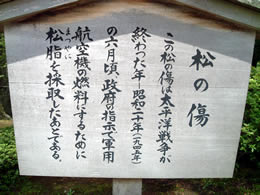 松の傷
この松の傷は太平洋戦争が
終わった年―昭和二十年(一九四五年)
の六月頃、政府の指示で軍用
航空機の燃料にするために
松脂を採取したあとである。
まつやに